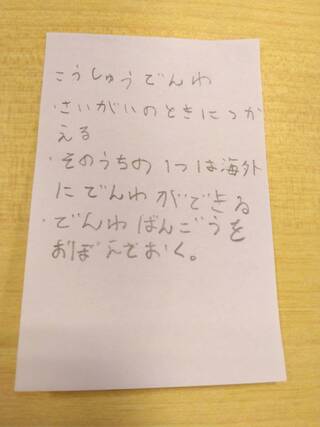 こうしゅうでんわ
・さいがいのときにつか
える
・そのうちの1つは海外
にでんわができる
・でんわばんごうを
おぼえておく。